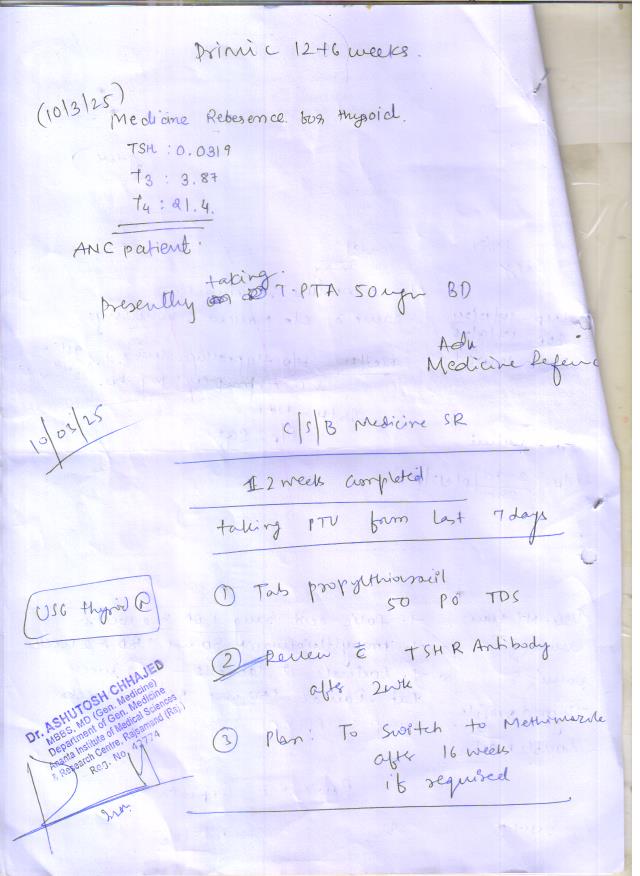 Primi c 12+6 weeks.
(10/3/25)
Medicine Reference for thyroid.
TSH : 0.0319
T3 : 3.87
T4 : 21.4.
ANC patient.
taking
Presently T. PTA 50 mgm BD
Adv
Medicine Refenc
10/03/25
C/S/B Medicine SR
12 weeks completed
taking PTU form last 7 days
① Tab propylthiouracil
50 PO TDS
USG thyroid
② Review c TSHR Antibody
after 2wk
③ Plan: To Switch to Methimazole
after 16 weeks
if required
Dr. ASHUTOSH CHHAJED
MBBS, MD (Gen. Medicine)
Department of Gen. Medicine
Ananta Institute of Medical Sciences
& Research Centre, Rajsamand (Raj.)
Reg. No. 42774